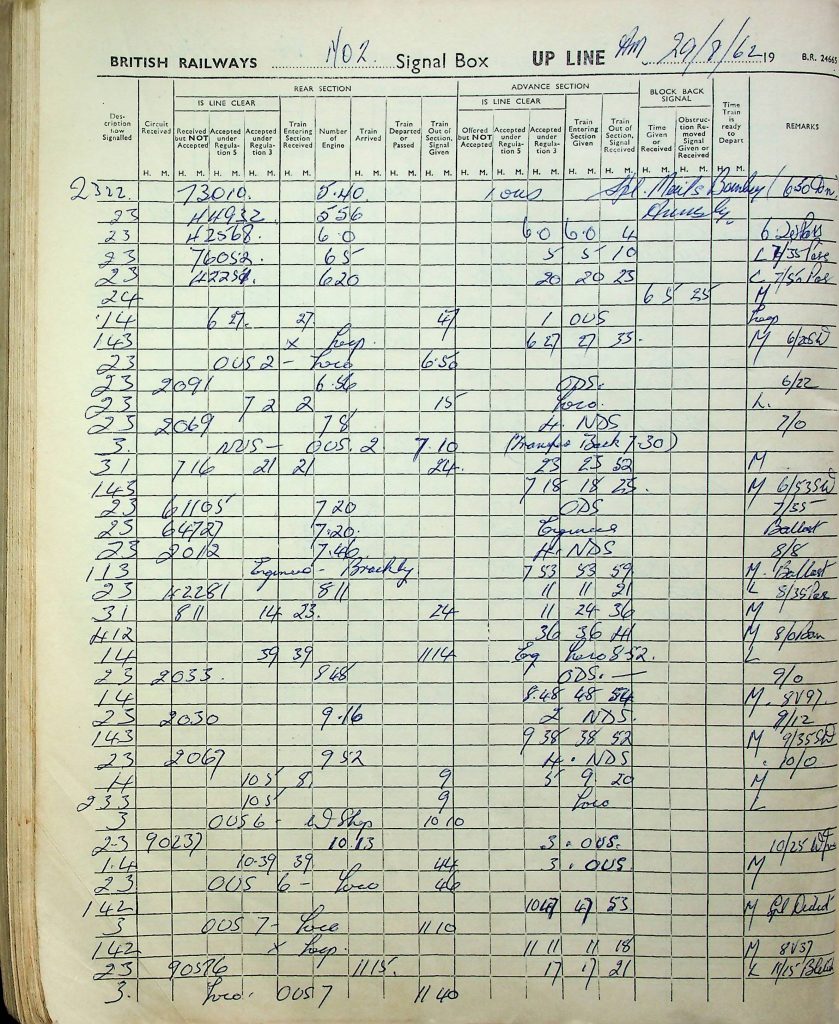 BRITISH RAILWAYS No 2 Signal Box UP LINE AM 29/8/62 19 B.R. 24665
REAR SECTION ADVANCE SECTION BLOCK BACK SIGNAL
IS LINE CLEAR IS LINE CLEAR
Description how Signalled Circuit Received Received but NOT Accepted Accepted under Regulation 5 Accepted under Regulation 3 Train Entering Section Received Number of Engine Train Arrived Train Departed or Passed Train Out of Section, Signal Given Offered but NOT Accepted Accepted under Regulation 5 Accepted under Regulation 3 Train Entering Section Given Train Out of Section, Signal Received Time Given or Received Obstruction Removed Signal Given or Received Time Train is ready to Depart REMARKS
H. M. H. M. H. M. H. M. H. M. H. M. H. M. H. M. H. M. H. M. H. M. H. M. H. M. H. M. H. M. H. M. H. M.
2322 73010 5.40 1 OUS
23 44932 556
23 42568 6.0 6.0 6.0 4
23 76052 65 5 5 10 L 7/35 Pass
23 42251 620 20 20 23 7/50 Pass
24 6 5 25 M
14 6 27 27 47 1 OUS Loop
143 x Loop 6 27 27 33 M 6/25
23 OUS 2 - Loco 6.50
23 2091 6.56 ODS. 6/22
23 7 2 2 15 Loco. L.
23 2069 78 4. NDS 7/0
3. NUS - OUS. 2 7.10 (Transfer Back 7.30)
31 716 21 21 24. 23 23 32 M
143 7 18 18 25. M 6/53
23 61105 7 20 ODS 7/35
23 64727 7.20 Engineers Ballast
23 2012 7.46 4. NDS 8/8
113 Engineers - Brackley 7 53 53 59 M. Ballast
23 42281 811 11 11 21 L 8/35 Pass
31 8 11 14 23. 24 11 24 36 M
412 36 36 41 M 8/0
14 39 39 1114 Eng Loco 8.52. L
23 2033. 848 ODS. — 9/0
14 8.48 48 54 M. 8V97
23 2030 9.16 2 NDS. 9/12
143 9 38 38 52 M 9/35
23 2067 952 4. NDS 10/0
14 10 5 8 9 5 9 20 M
233 10 5 9 Loco L
3 OUS 6 - W Shop 10 10
23 90237 10.13 3. OUS. 10/25
1.4 10.39 39 44 3. OUS M
23 OUS 6 - Loco 46
142 1047 47 53 M
3 OUS 7 - Loco 11 10
142 x Loop. 11 11 11 18 M 8V37
23 90576 1115. 17 17 21 L 11/15
3. Loco. OUS 7 11 40